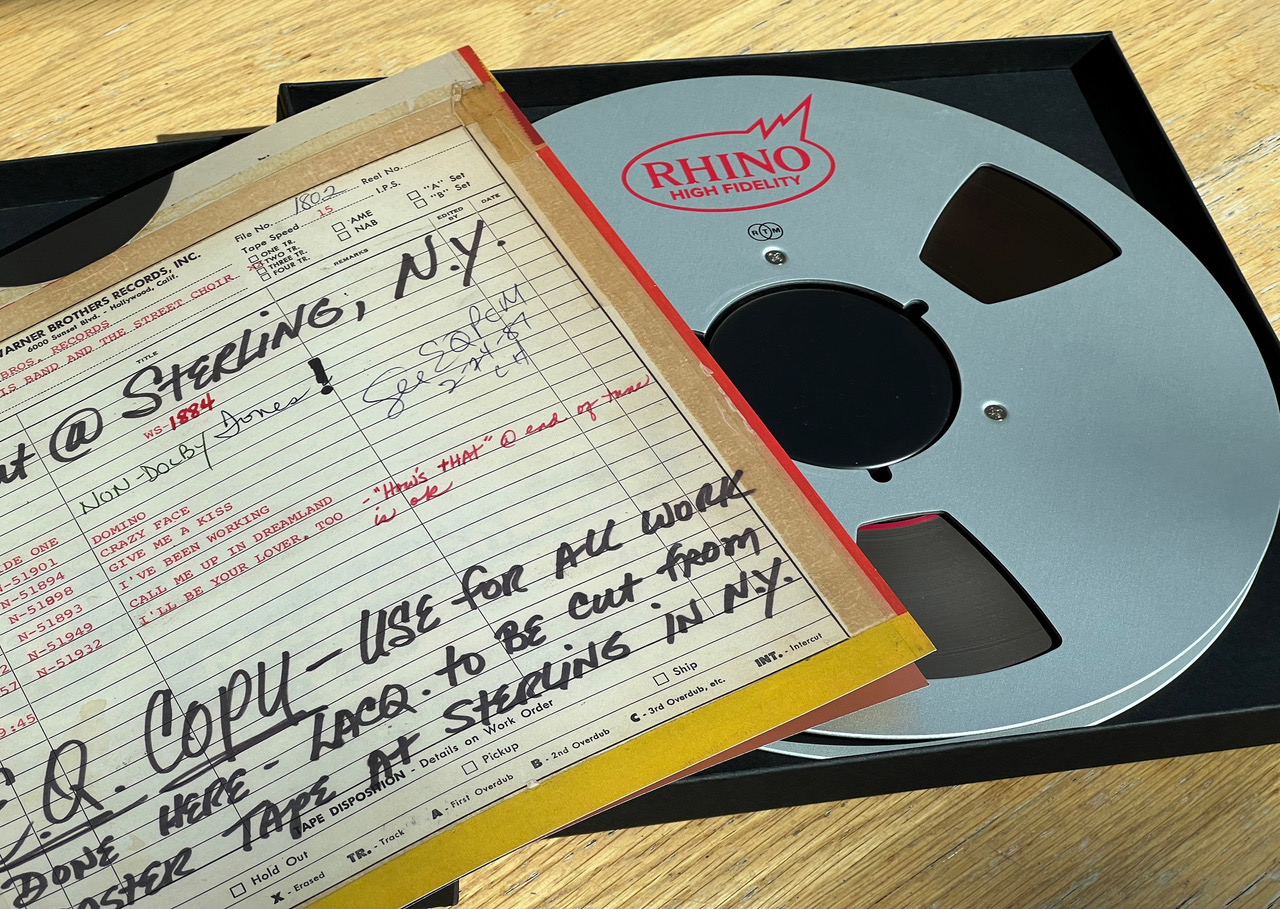 RHINO
HIGH FIDELITY
RTM
File No. 1802 Reel No.
Tape Speed 15 I.P.S.
ONE TR.
TWO TR.
THREE TR.
FOUR TR.
AME
NAB
"A" Set
"B" Set
WARNER BROTHERS RECORDS, INC.
6000 Sunset Blvd. - Hollywood, Calif.
BROS. RECORDS
IS BAND AND THE STREET CHOIR
TITLE
REMARKS
EDITED BY
DATE
@ STERLING, N.Y.
WS-1884
NON-DOLBY Tones!
See EQ PCM
2-24-87
CH
IDE ONE
N-51901 DOMINO
N-51894 CRAZY FACE
N-51898 GIVE ME A KISS
N-51893 I'VE BEEN WORKING
N-51949 CALL ME UP IN DREAMLAND
N-51932 I'LL BE YOUR LOVER, TOO
- "How's THAT" @ end of tune
is ok
9:45
E.Q. COPY - USE for ALL WORK
DONE HERE - LACQ. to BE CUT from
MASTER TAPE At STERLING IN N.Y.
TAPE DISPOSITION - Details on Work Order
Hold Out Pickup Ship
X - Erased TR. - Track A - First Overdub B - 2nd Overdub C - 3rd Overdub, etc. INT. - Intercut